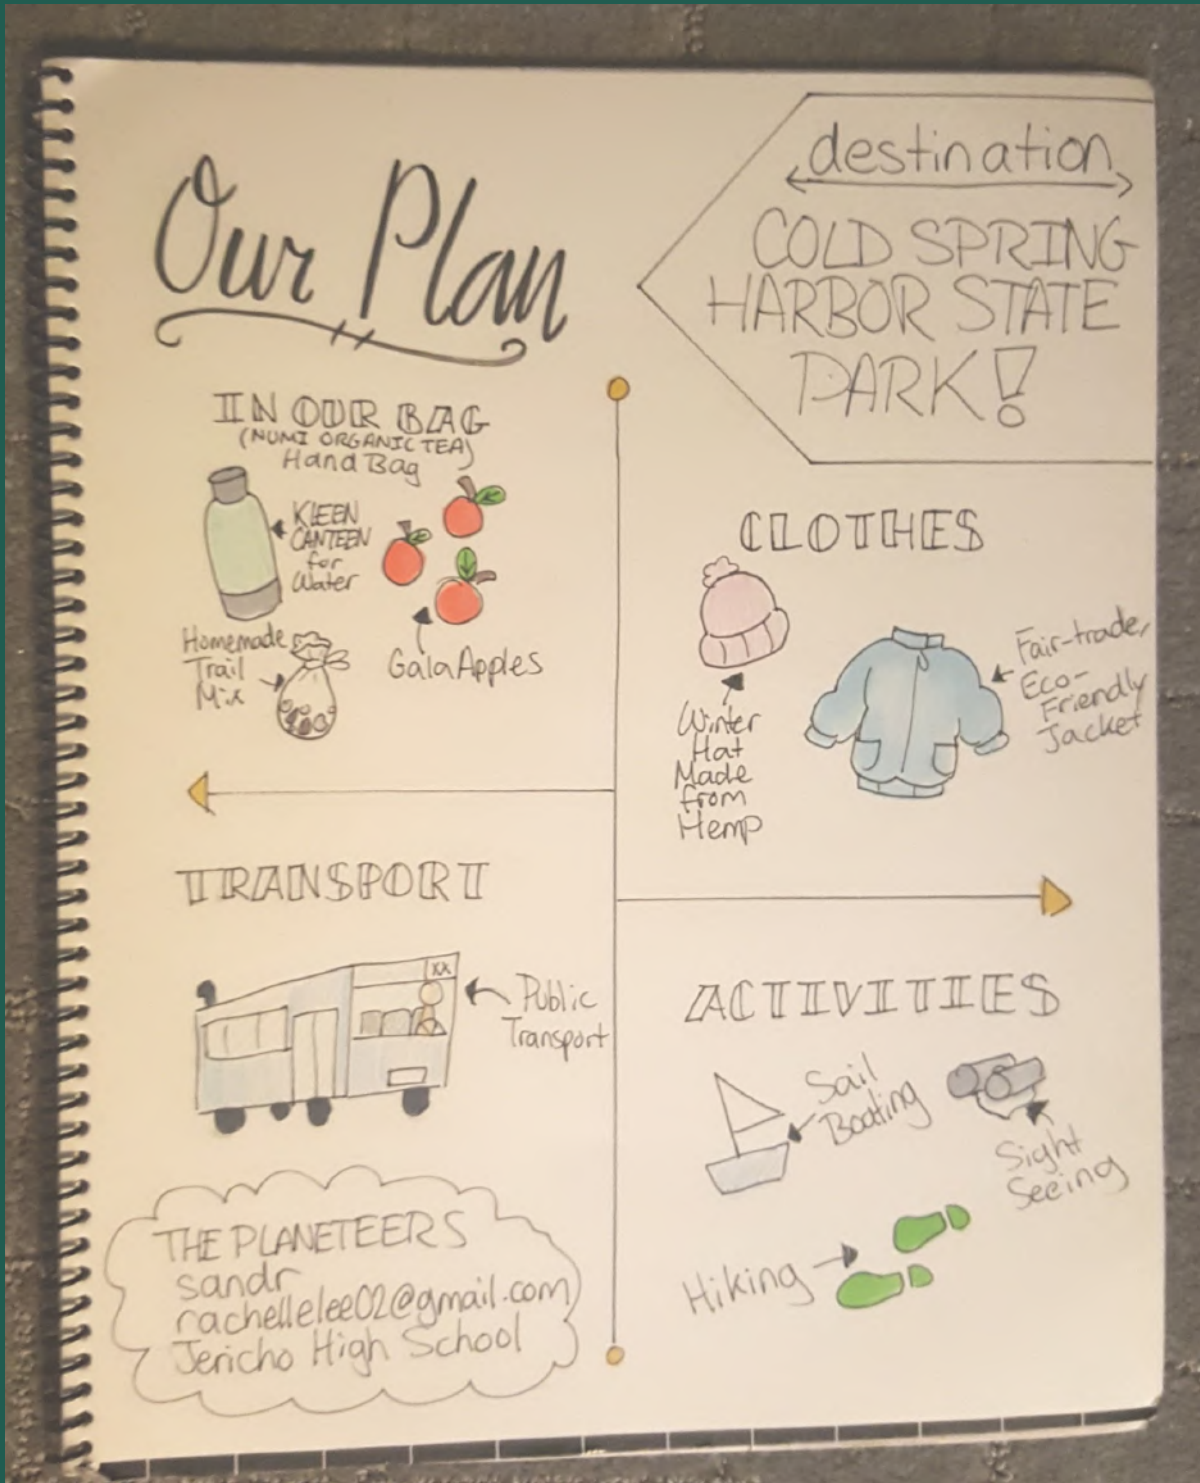 Our Plan
destination
COLD SPRING
HARBOR STATE
PARK!
IN OUR BAG
(NUMI ORGANIC TEA)
Hand Bag
KLEEN
CANTEEN
for
Water
Homemade
Trail
Mix
Gala Apples
CLOTHES
Winter
Hat
Made
from
Hemp
Fair-trade,
Eco-
Friendly
Jacket
TRANSPORT
XX
Public
Transport
ACTIVITIES
Sail
Boating
Sight
Seeing
Hiking
THE PLANETEERS
sandr
rachellelee02@gmail.com
Jericho High School